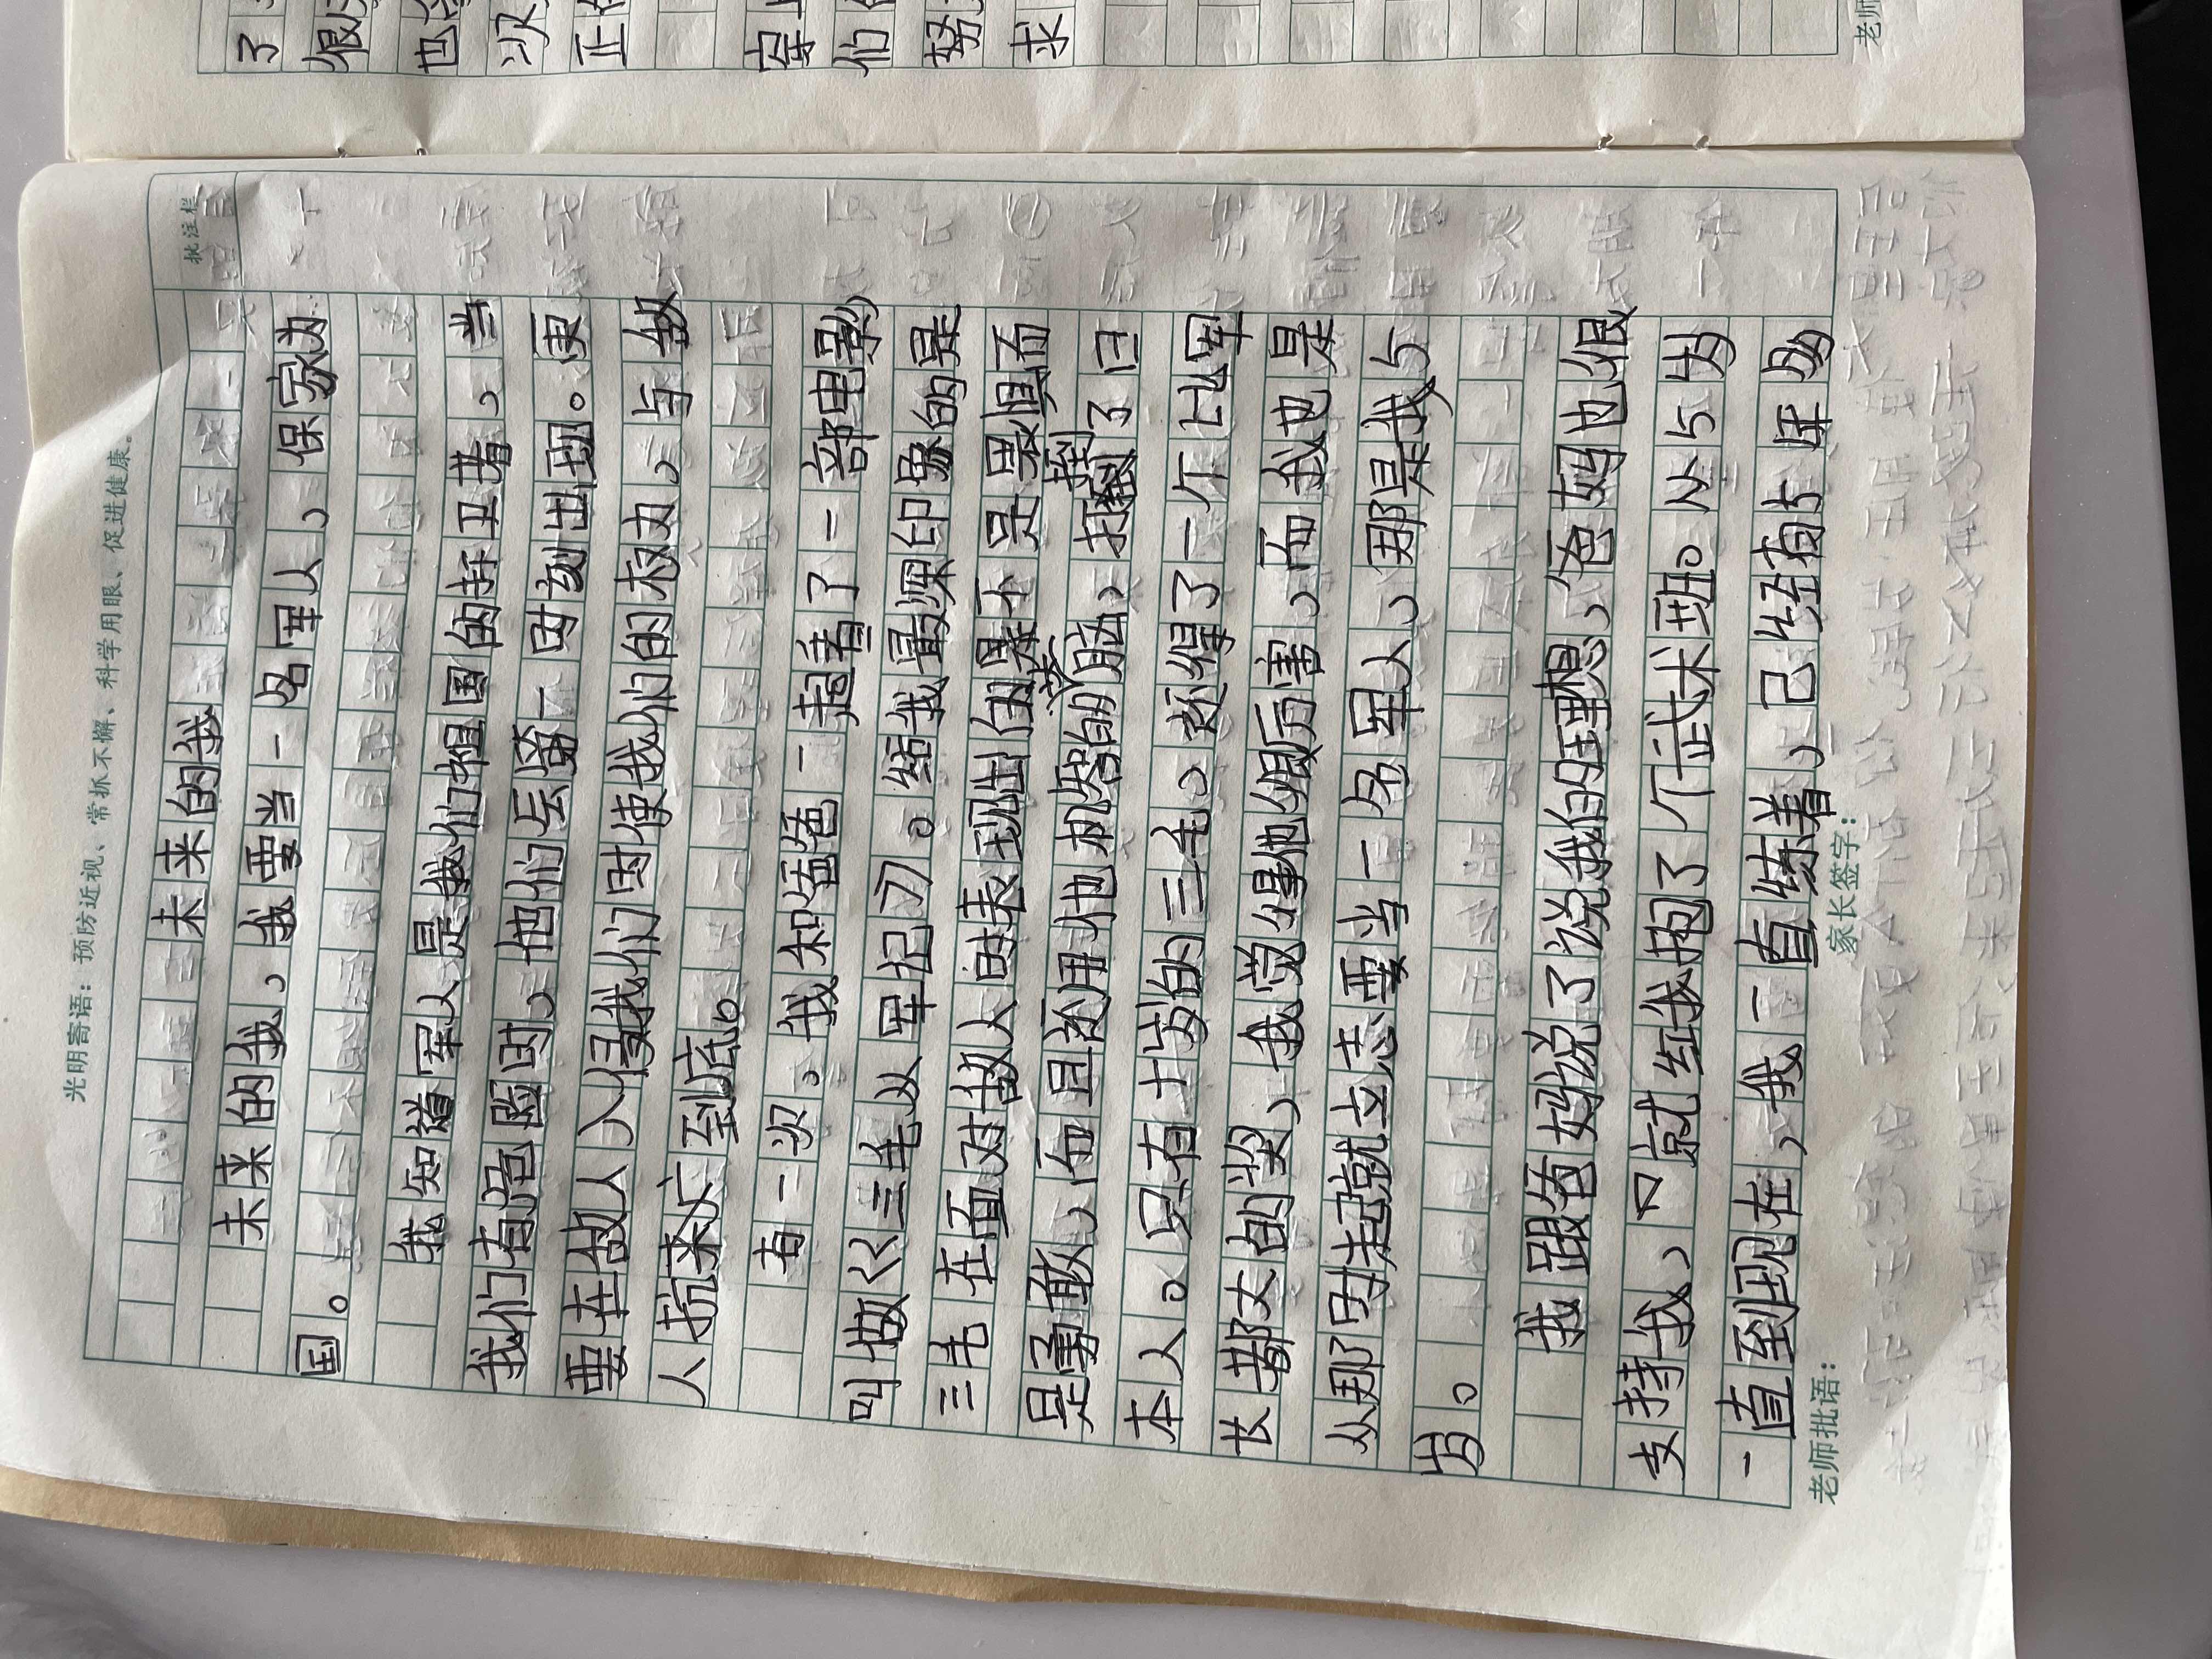 光明寄语：预防近视、常抓不懈、科学用眼、促进健康。
批注栏
未来的我
未来的我，我要当一名军人，保家为
国。
我知道军人是我们祖国的捍卫者，当
我们有危险时，他们会第一时刻出现。更
要在敌人入侵我们时使我们的权力，与敌
人抗来到底。
有一次，我和爸爸一起看了一部电影
叫做《三毛从军记》。给我最深印象的是
三毛在面对敌人时表现出的暴不是畏惧而
是勇敢，而且还用他机智的头脑，打倒了日
本人。只有十岁的三毛。还得了一个上军
长都大的奖，我觉得他很厉害，而我也是
从那时起就立志要当一名军人，那是我5
岁。
我跟爸妈说了说我的理想，爸妈也很
支持我，就给我报了个武术班。从5岁
一直到现在，我一直练着，已经有5年多
老师批语：
家长签字：
了
很
也
以
正
穿
们
努
求
老师